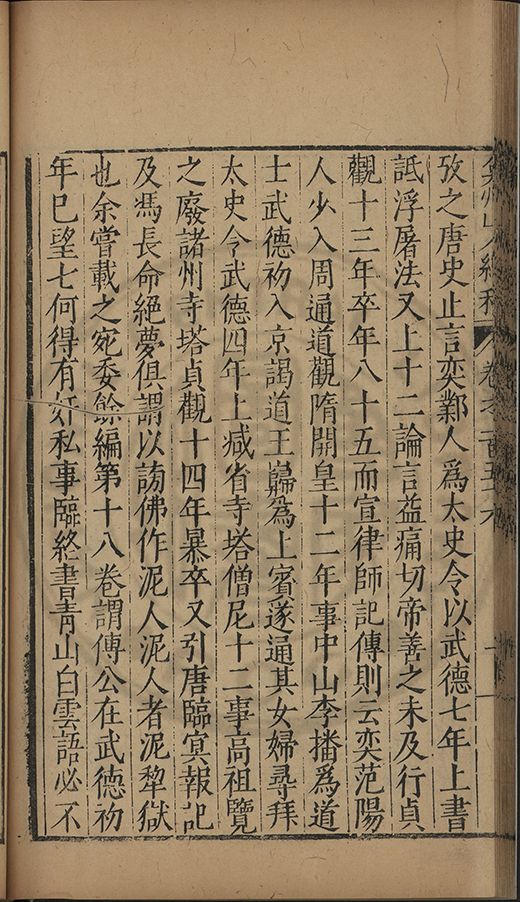 弇州山人續稿 卷之一百五十六
攷之唐史止言奕鄴人爲太史令以武德七年上書
詆浮屠法又上十二論言益痛切帝善之未及行貞
觀十三年卒年八十五而宣律師記傳則云奕范陽
人少入周通道觀隋開皇十二年事中山李播爲道
士武德初入京謁道王巋爲上賓遂通其女婦尋拜
太史令武德四年上减省寺塔僧尼十二事高祖覽
之廢諸州寺塔貞觀十四年暴卒又引唐臨冥報記
及馮長命絕夢俱謂以謗佛作泥人泥人者泥犂獄
也余嘗載之宛委餘編第十八卷謂傅公在武德初
年已望七何得有奸私事臨終書青山白雲語必不